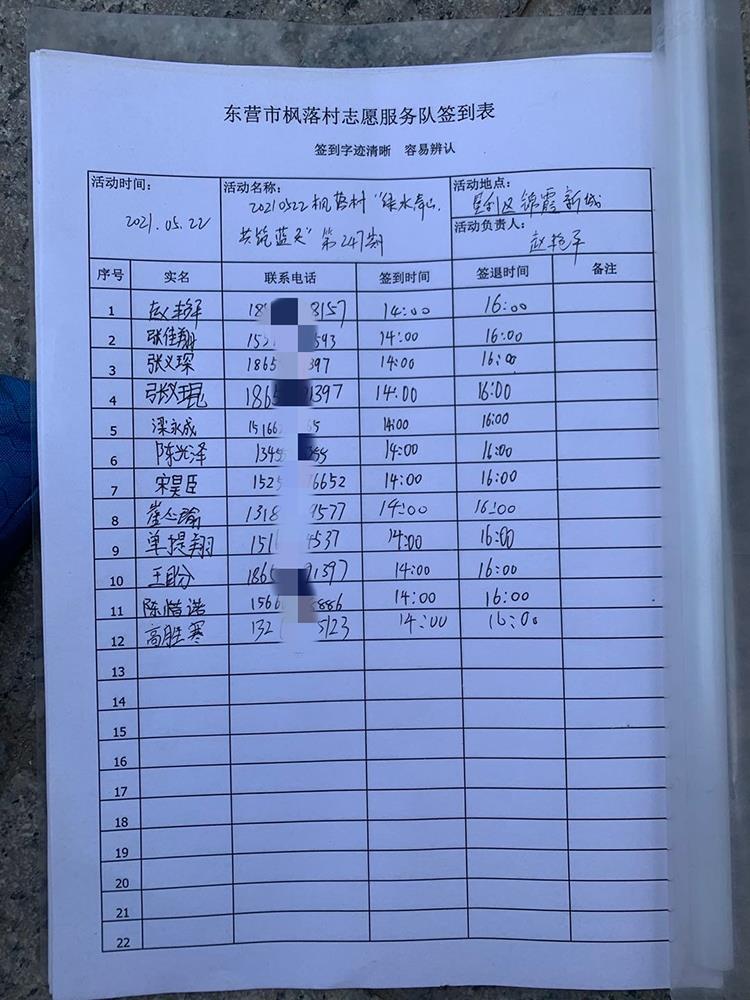 东营市枫落村志愿服务队签到表
签到字迹清晰 容易辨认
活动时间:
2021.05.22
活动名称:
20210522枫落村"绿水青山,
共筑蓝天"第247期
活动地点:
垦利区锦霞新城
活动负责人:
赵艳平
序号 实名 联系电话 签到时间 签退时间 备注
1 赵艳平 18 8157 14:00 16:00
2 张佳翔 153 593 14:00 16:00
3 张义琛 1865 397 14:00 16:00
4 张义琨 1865 1397 14:00 16:00
5 梁永成 15166 65 14:00 16:00
6 陈光泽 1345 55 14:00 16:00
7 宋昊臣 1525 6652 14:00 16:00
8 崔 瑜 1318 1577 14:00 16:00
9 单提翔 1516 4537 14:00 16:00
10 王盼 1865 1397 14:00 16:00
11 陈惜诺 1566 8886 14:00 16:00
12 高胜寒 132 5123 14:00 16:00
13
14
15
16
17
18
19
20
21
22